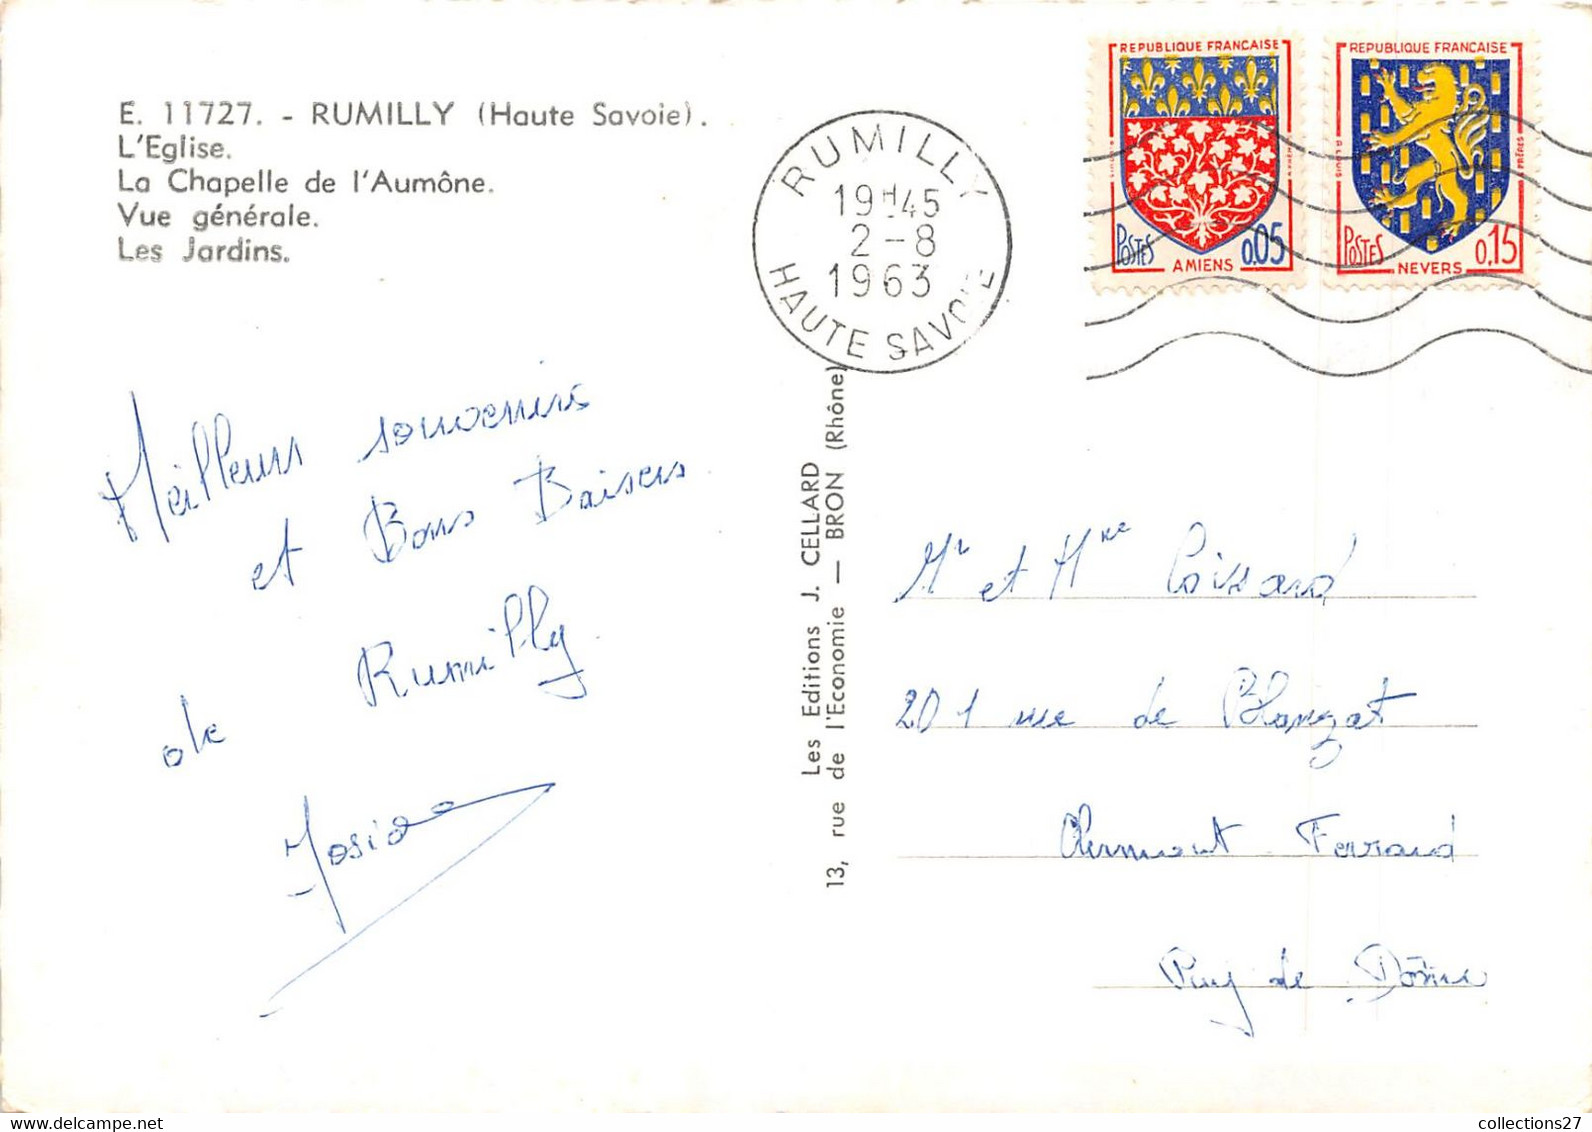 E. 11727. - RUMILLY (Haute Savoie).
L'Eglise.
La Chapelle de l'Aumône.
Vue générale.
Les Jardins.
RUMILLY
19H45
2-8
1963
HAUTE SAVOIE
REPUBLIQUE FRANÇAISE
POSTES 0,05
AMIENS
REPUBLIQUE FRANÇAISE
POSTES 0,15
NEVERS
Meilleurs souvenirs
et Bons Baisers
de Rumilly.
Josiane
Les Editions J. CELLARD
13, rue de l'Economie — BRON (Rhône)
Mr et Mme Coissard
201 rue de Blanzat
Clermont Ferrand
Puy de Dôme
collections27